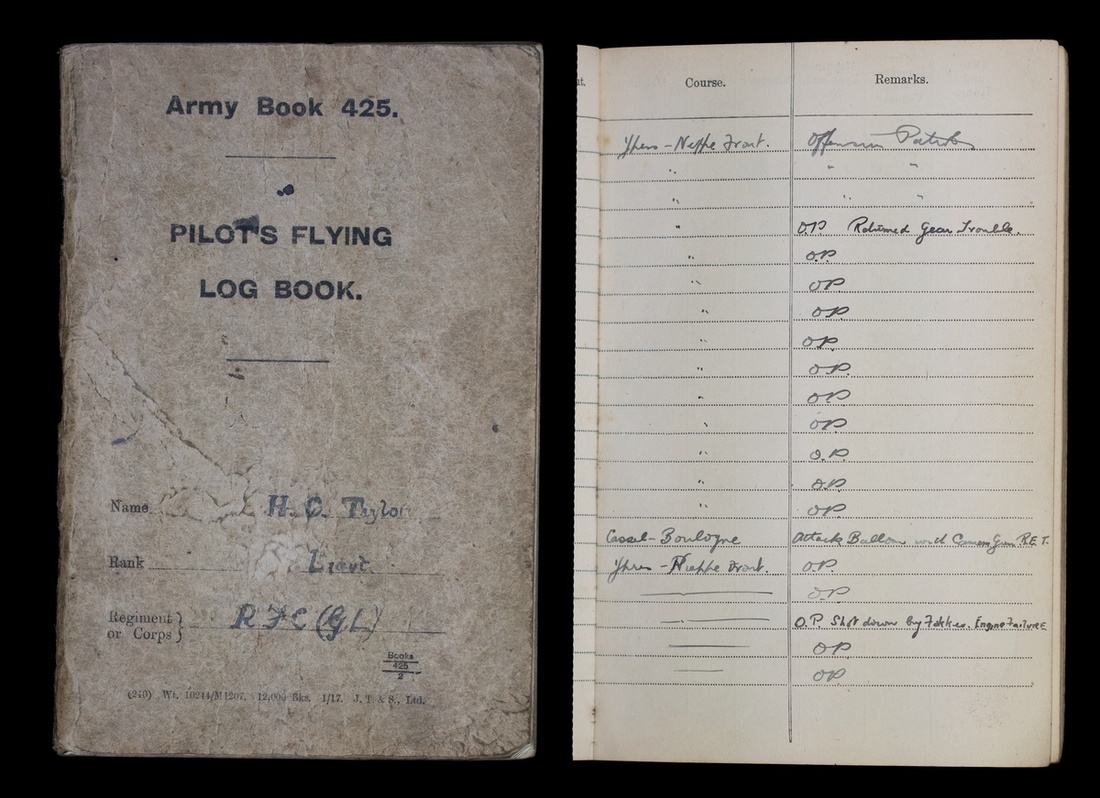 Army Book 425.
PILOT'S FLYING
LOG BOOK.
Name H. C. Taylor
Rank Lieut
Regiment or Corps } R F C (GL)
Books
425
2
(240) Wt. 10244/M1207. 12,000 Bks. 1/17. J. T. & S., Ltd.
Course. Remarks.
Ypres - Front. Offensive Patrol
" " "
" " "
" O.P Returned Gear Trouble.
" O.P.
" OP
" OP
" OP
" OP.
" OP
" OP
" O.P.
" OP
" OP
Cassel - Boulogne Attacks Balloon with Gun R.E.T.
Ypres - Front. O.P.
O.P
O.P. Shot down by Fokker. Engine Failure
OP
OP